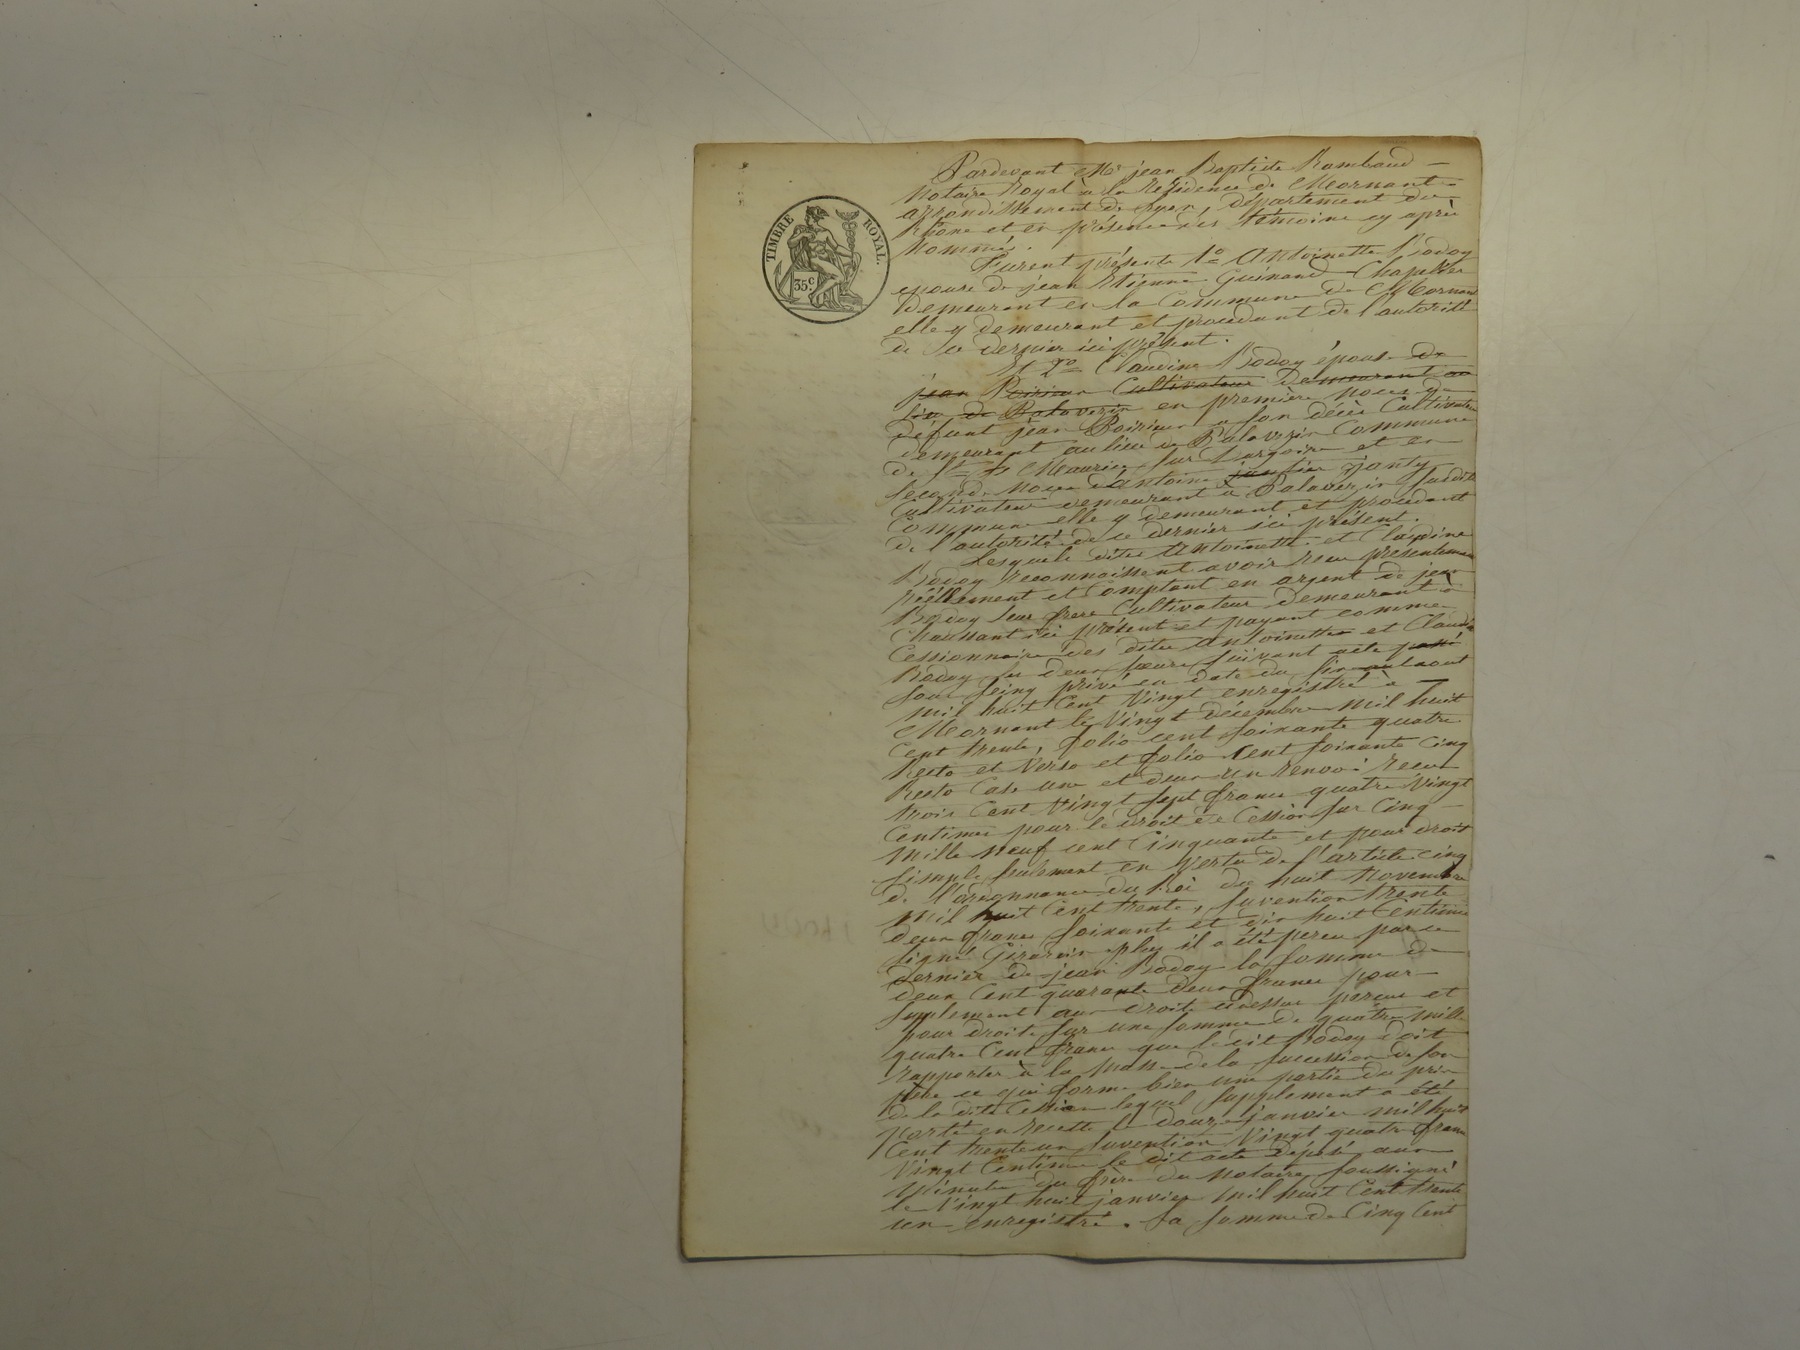 TIMBRE ROYAL.
35c
Pardevant Me jean Baptiste Rambaud
Notaire Royal à la Résidence de Mornant
arrondissement de Lyon, département du
Rhône et en présence des témoins cy après
Nommés.
Furent présents 1o Antoinette Bodoy
epouse de jean Etienne Guinand Chapelier
demeurant en la Commune de Mornant
elle y demeurant et procédant de l'autorité
de ce dernier ici présent.
Et 2o Claudine Bodoy épouse de
jean Poirieux Cultivateur demeurant au
lieu de Palaverin en première noces de
défunt jean Poirieux a son décès Cultivateur
demeurant au lieu de Palaverin Commune
de St Maurice sur Dargoire et en
Seconde Noces d'antoine jonty
Cultivateur demeurant à Palaverin susdite
Commune elle y demeurant et procédant
de l'autorité de ce dernier ici présent.
Lesquels dites Antoinette et Claudine
Bodoy reconnaissent avoir recu présentement
réellement et Comptant en argent de jean
Bodoy leur frere Cultivateur demeurant à
Chaussant ici présent et payant comme
Cessionnaire des dites Antoinette et Claudine
Bodoy ses deux soeurs suivant acte passé
sous seing privé en date du six aout
mil huit Cent Vingt enregistré à
Mornant le Vingt décembre mil huit
Cent trente, folio cent soixante quatre
Recto et Verso et folio Cent soixante Cinq
Recto Case une et deux un renvoi recu
trois Cent Vingt sept francs quatre Vingt
Centimes pour le droit de Cession sur Cinq
mille neuf cent Cinquante et pour droit
simple seulement en Vertu de l'article cinq
de l'ordonnance du Roi du huit Novembre
mil huit Cent trente, suvention trente
deux francs soixante et dix huit Centimes
signé Girardin plus il a été percu par ce
dernier de jean Bodoy la somme de
deux Cent quarante deux francs pour
suplement aux droits cidessus percus et
pour droits sur une somme de quatre mille
quatre Cent francs que le dit Bodoy doit
rapporter à la masse de la succession de son
père ce qui forme bien une partie du prix
de la dite Cession lequel supplement a été
porté en recette le douze janvier mil huit
Cent trente un suvention Vingt quatre francs
Vingt Centimes le dit acte déposé aux
Minutes du frère du Notaire soussigné
le Vingt huit janvier mil huit Cent trente
un enregistré. la somme de Cinq Cent